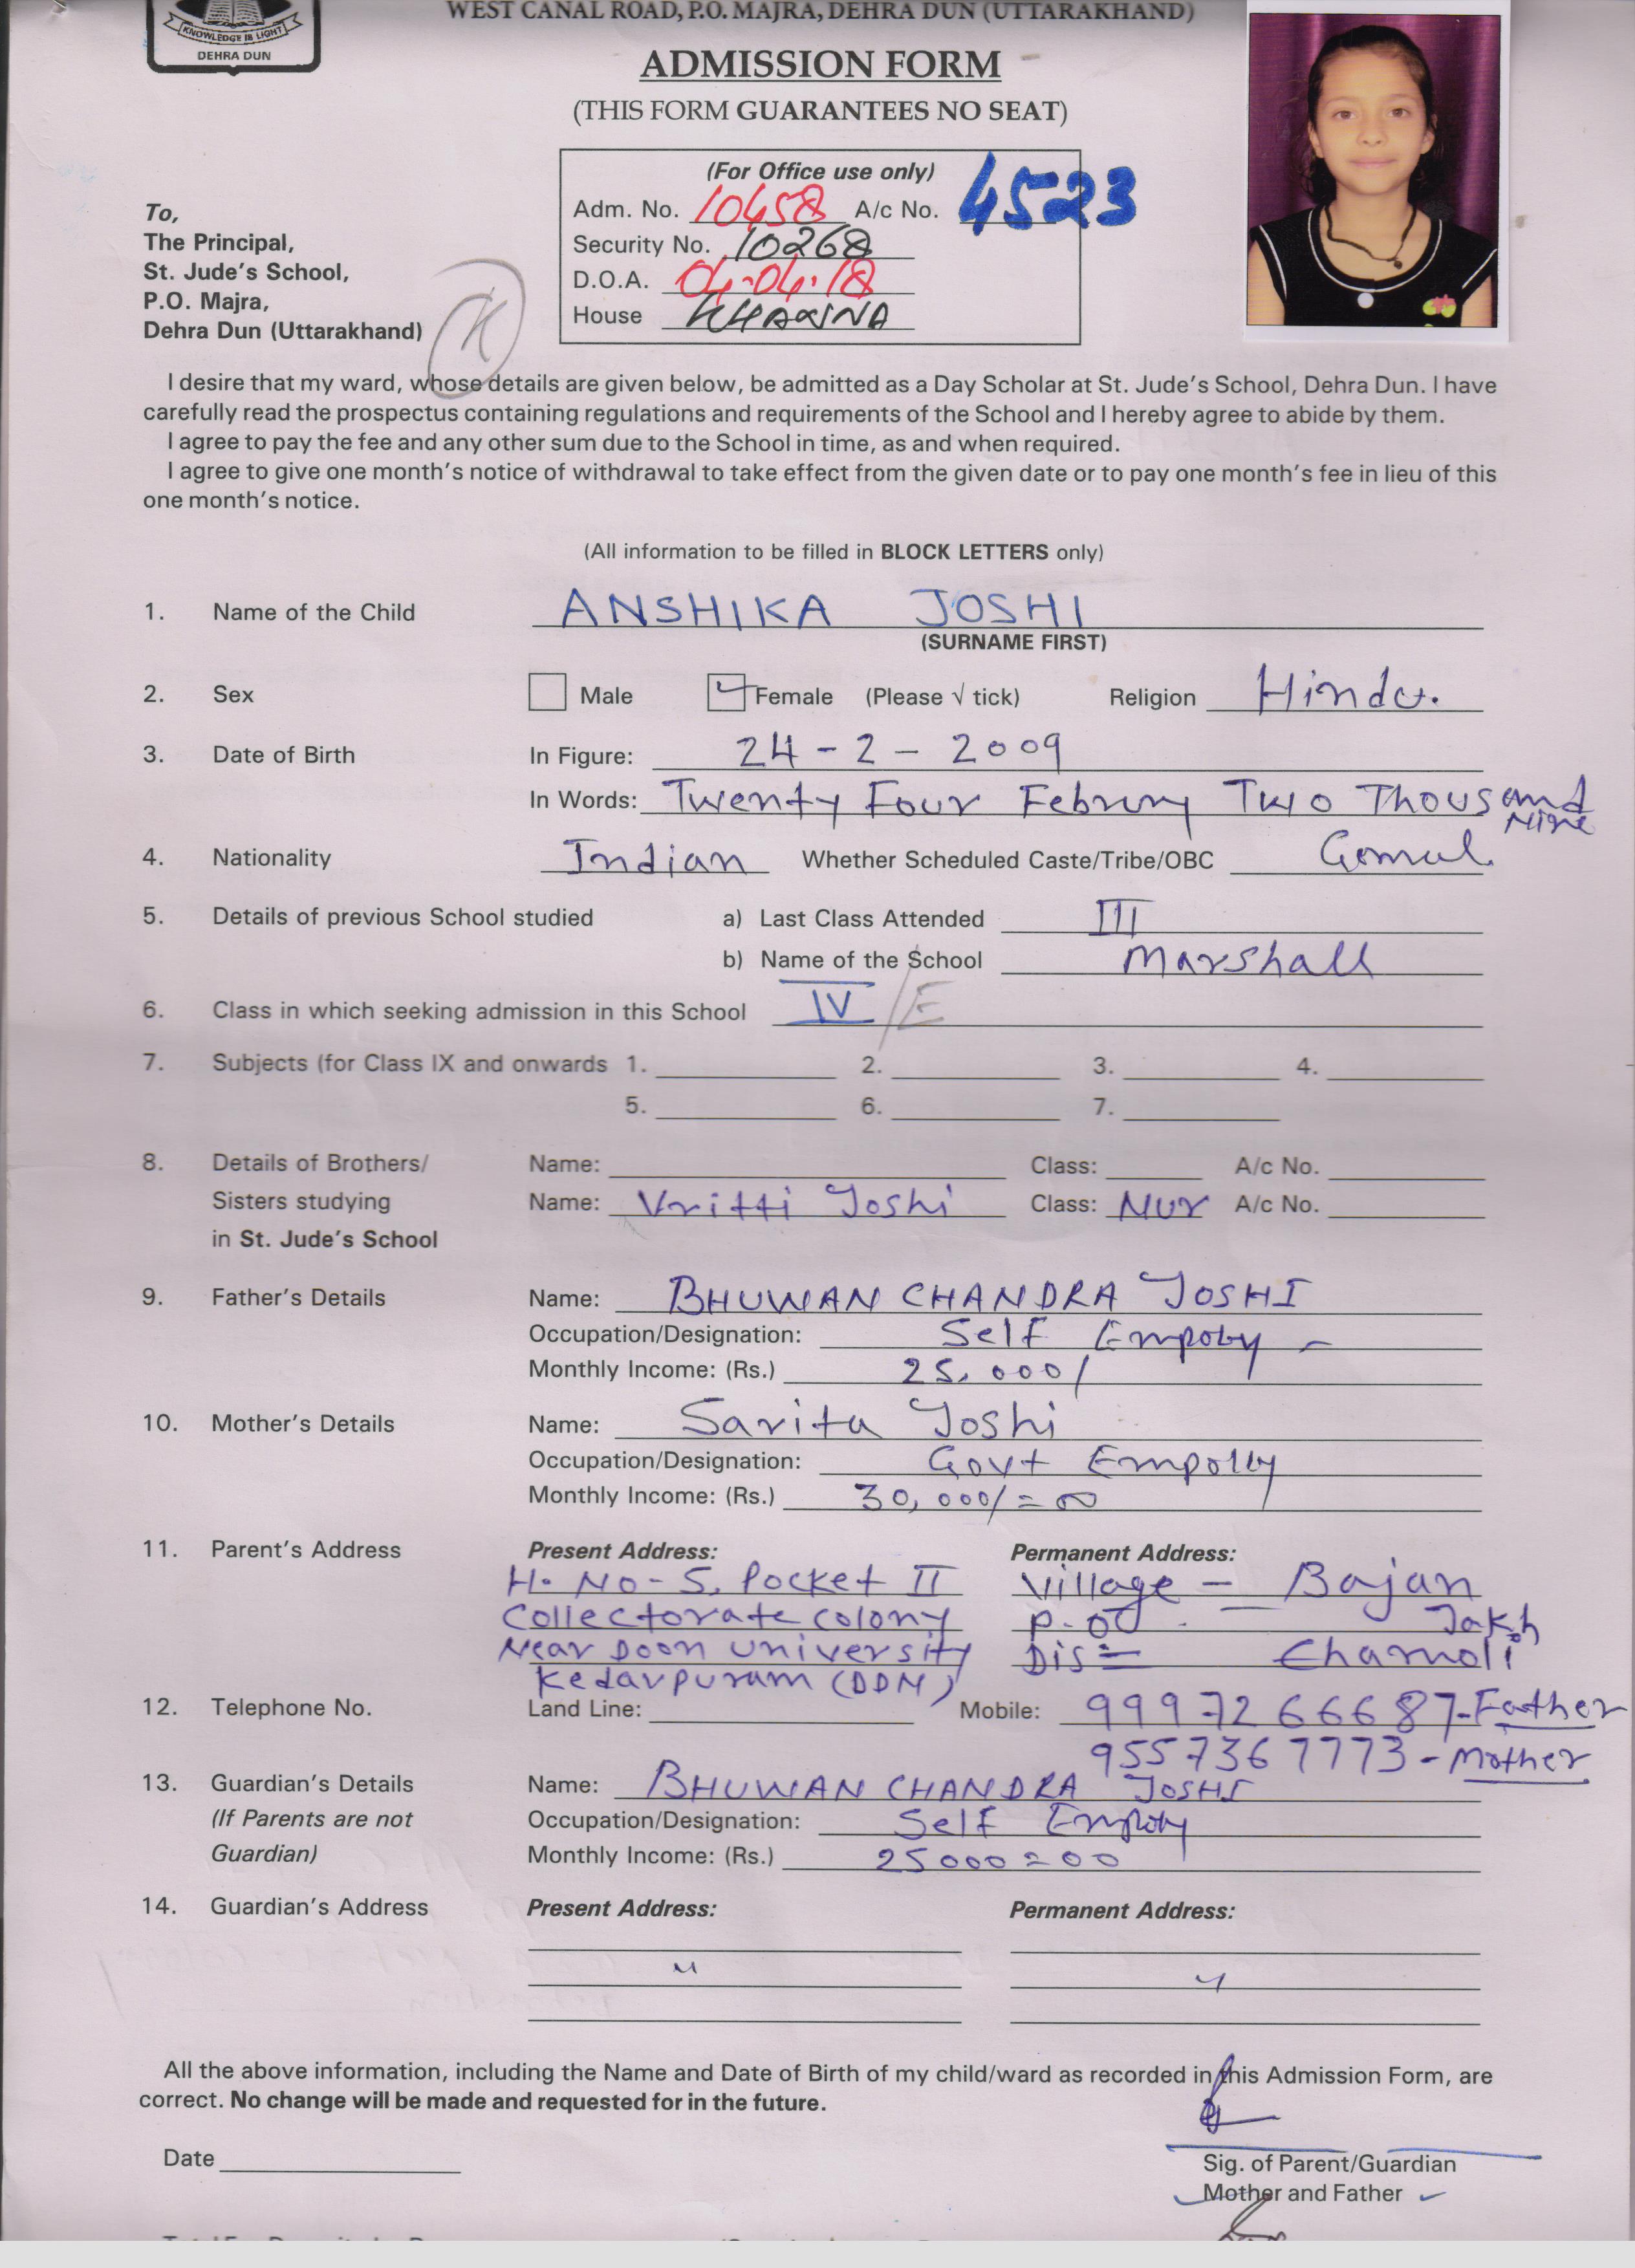 WEST CANAL ROAD, P.O. MAJRA, DEHRA DUN (UTTARAKHAND)
KNOWLEDGE IS LIGHT
DEHRA DUN
ADMISSION FORM
(THIS FORM GUARANTEES NO SEAT)
(For Office use only)
Adm. No. 10458 A/c No. 4523
Security No. 10268
D.O.A. 04-04-18
House
To,
The Principal,
St. Jude's School,
P.O. Majra,
Dehra Dun (Uttarakhand)
K
I desire that my ward, whose details are given below, be admitted as a Day Scholar at St. Jude's School, Dehra Dun. I have
carefully read the prospectus containing regulations and requirements of the School and I hereby agree to abide by them.
I agree to pay the fee and any other sum due to the School in time, as and when required.
I agree to give one month's notice of withdrawal to take effect from the given date or to pay one month's fee in lieu of this
one month's notice.
(All information to be filled in BLOCK LETTERS only)
1. Name of the Child ANSHIKA JOSHI
(SURNAME FIRST)
2. Sex Male Female (Please √ tick) Religion Hindu.
3. Date of Birth In Figure: 24-2-2009
In Words: Twenty Four Februry Two Thousand
Nine
4. Nationality Indian Whether Scheduled Caste/Tribe/OBC
5. Details of previous School studied a) Last Class Attended III
b) Name of the School Marshall
6. Class in which seeking admission in this School IV/E
7. Subjects (for Class IX and onwards 1. 2. 3. 4.
5. 6. 7.
8. Details of Brothers/ Name: Class: A/c No.
Sisters studying Name: Vritti Joshi Class: Nur A/c No.
in St. Jude's School
9. Father's Details Name: BHUWAN CHANDRA JOSHI
Occupation/Designation: Self Empoly
Monthly Income: (Rs.) 25,000/
10. Mother's Details Name: Sarita Joshi
Occupation/Designation: Govt Empolly
Monthly Income: (Rs.) 30,000/=00
11. Parent's Address Present Address: Permanent Address:
H. No-5, Pocket II Village - Bajan
Collectorate colony P.O - Jakh
Near Doon University Dis = Chamoli
Kedarpuram (DDN)
12. Telephone No. Land Line: Mobile: 9997266687-Father
9557367773-Mother
13. Guardian's Details Name: BHUWAN CHANDRA JOSHI
(If Parents are not Occupation/Designation: Self Empoly
Guardian) Monthly Income: (Rs.) 25000=00
14. Guardian's Address Present Address: Permanent Address:
All the above information, including the Name and Date of Birth of my child/ward as recorded in this Admission Form, are
correct. No change will be made and requested for in the future.
Date
Sig. of Parent/Guardian
Mother and Father